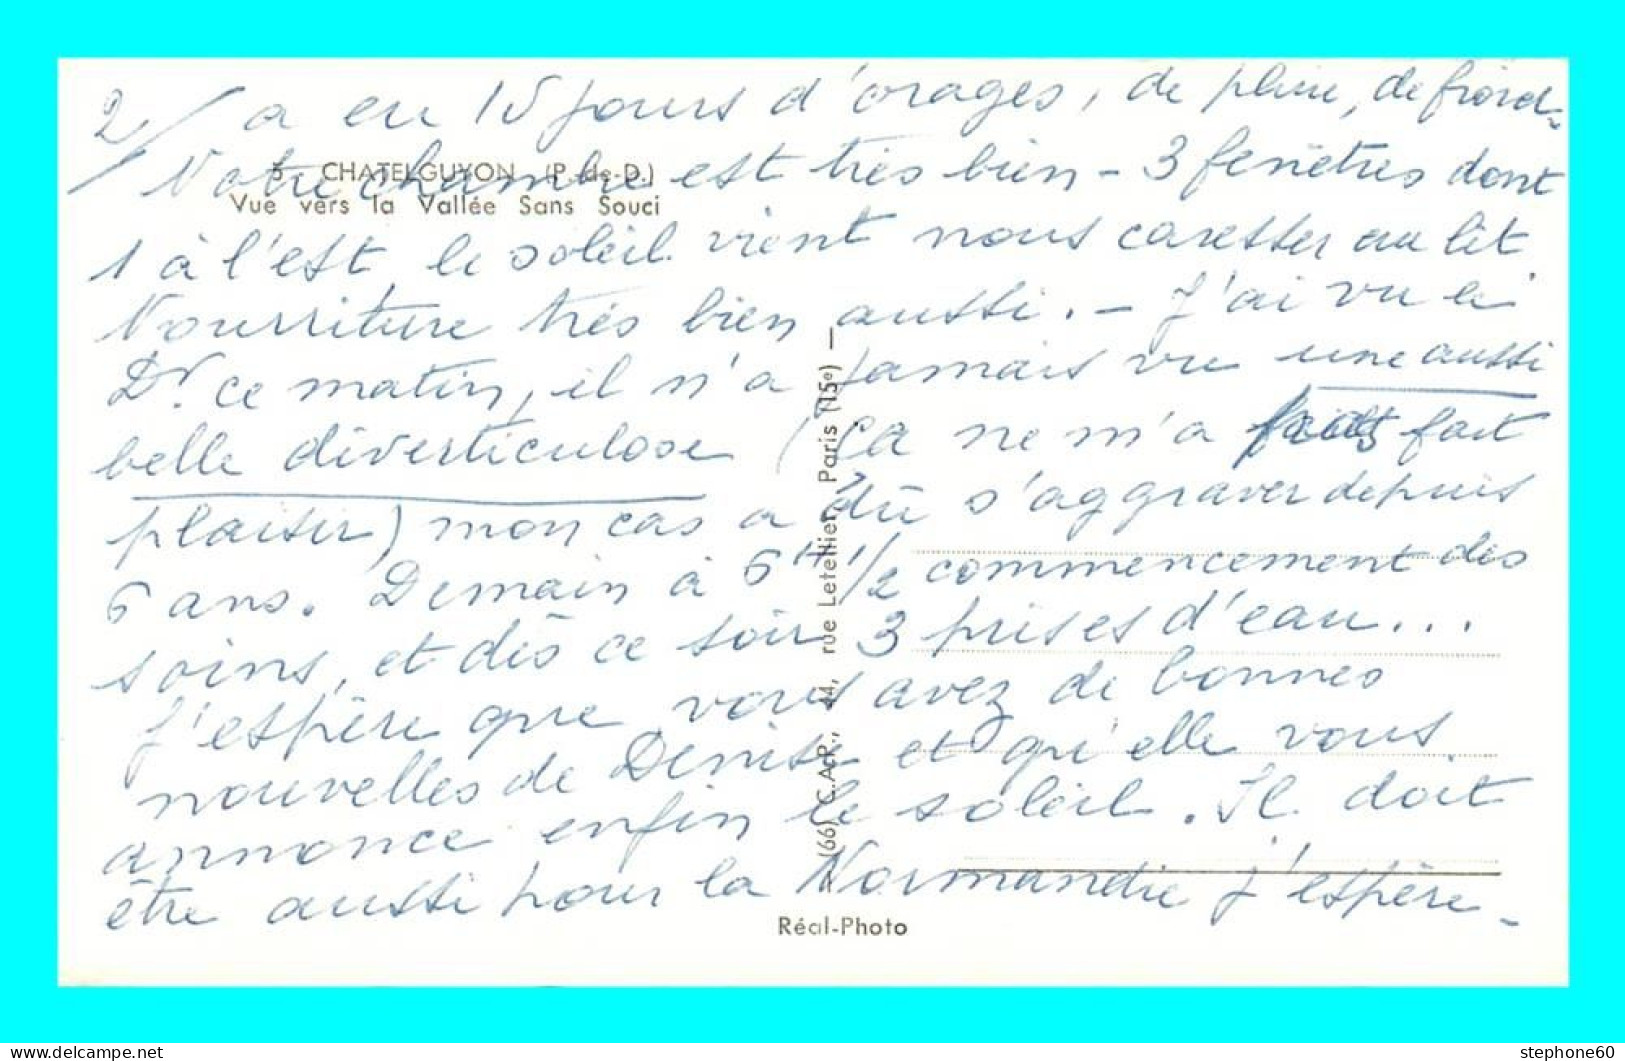 2/ a eu 15 jours d'orages, de pluie, de froid.
5 - CHATELGUYON (P.-de-D.)
Notre chambre est très bien - 3 fenêtres dont
Vue vers la Vallée Sans Souci
1 à l'est, le soleil vient nous caresser au lit
Nourriture très bien aussi. - J'ai vu le
Dr. ce matin, il n'a jamais vu une aussi
belle diverticulose (ça ne m'a pas fait
plaisir) mon cas a dû s'aggraver depuis
6 ans. Demain à 6H 1/2 commencement des
soins, et dès ce soir 3 prises d'eau...
J'espère que vous avez de bonnes
nouvelles de Denise et qu'elle vous
annonce enfin le soleil. Il doit
être aussi pour la Normandie j'espère -
(66) C.A.P., 44, rue Letellier, Paris (15e) —
Réal-Photo
stephone60